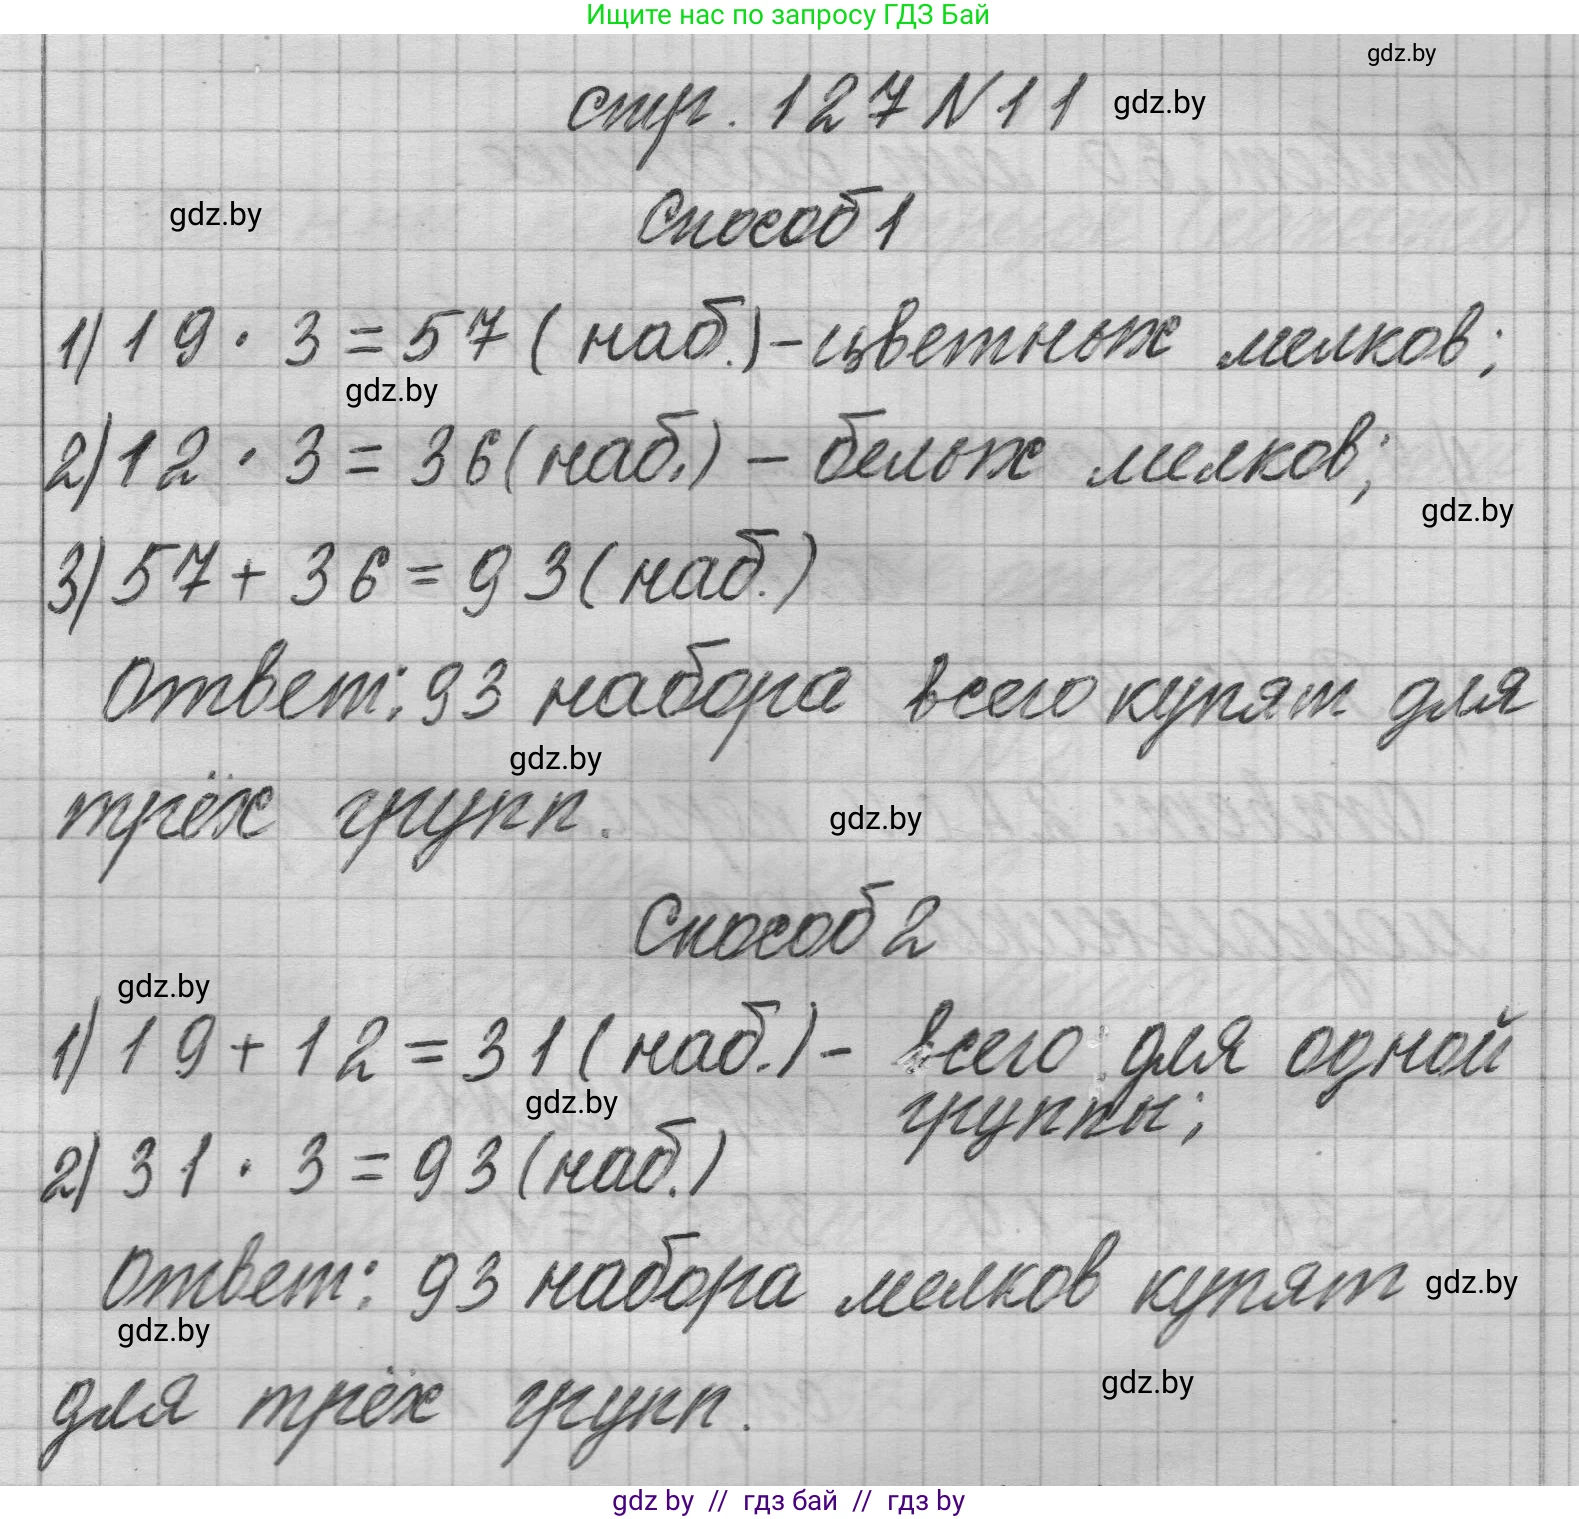 Ищите нас по запросу ГДЗ Бай
gdz.by
стр. 127 N 11 gdz.by
gdz.by Способ 1
1) 19 · 3 = 57 (наб.) - цветных мелков;
gdz.by
2) 12 · 3 = 36 (наб.) - белых мелков;
gdz.by
3) 57 + 36 = 93 (наб.)
Ответ: 93 набора всего купят для
gdz.by
трёх групп. gdz.by
Способ 2
gdz.by
1) 19 + 12 = 31 (наб.) - всего для одной
gdz.by группы;
2) 31 · 3 = 93 (наб.)
Ответ: 93 набора мелков купят gdz.by
gdz.by
для трёх групп. gdz.by
gdz by // гдз бай // гдз by